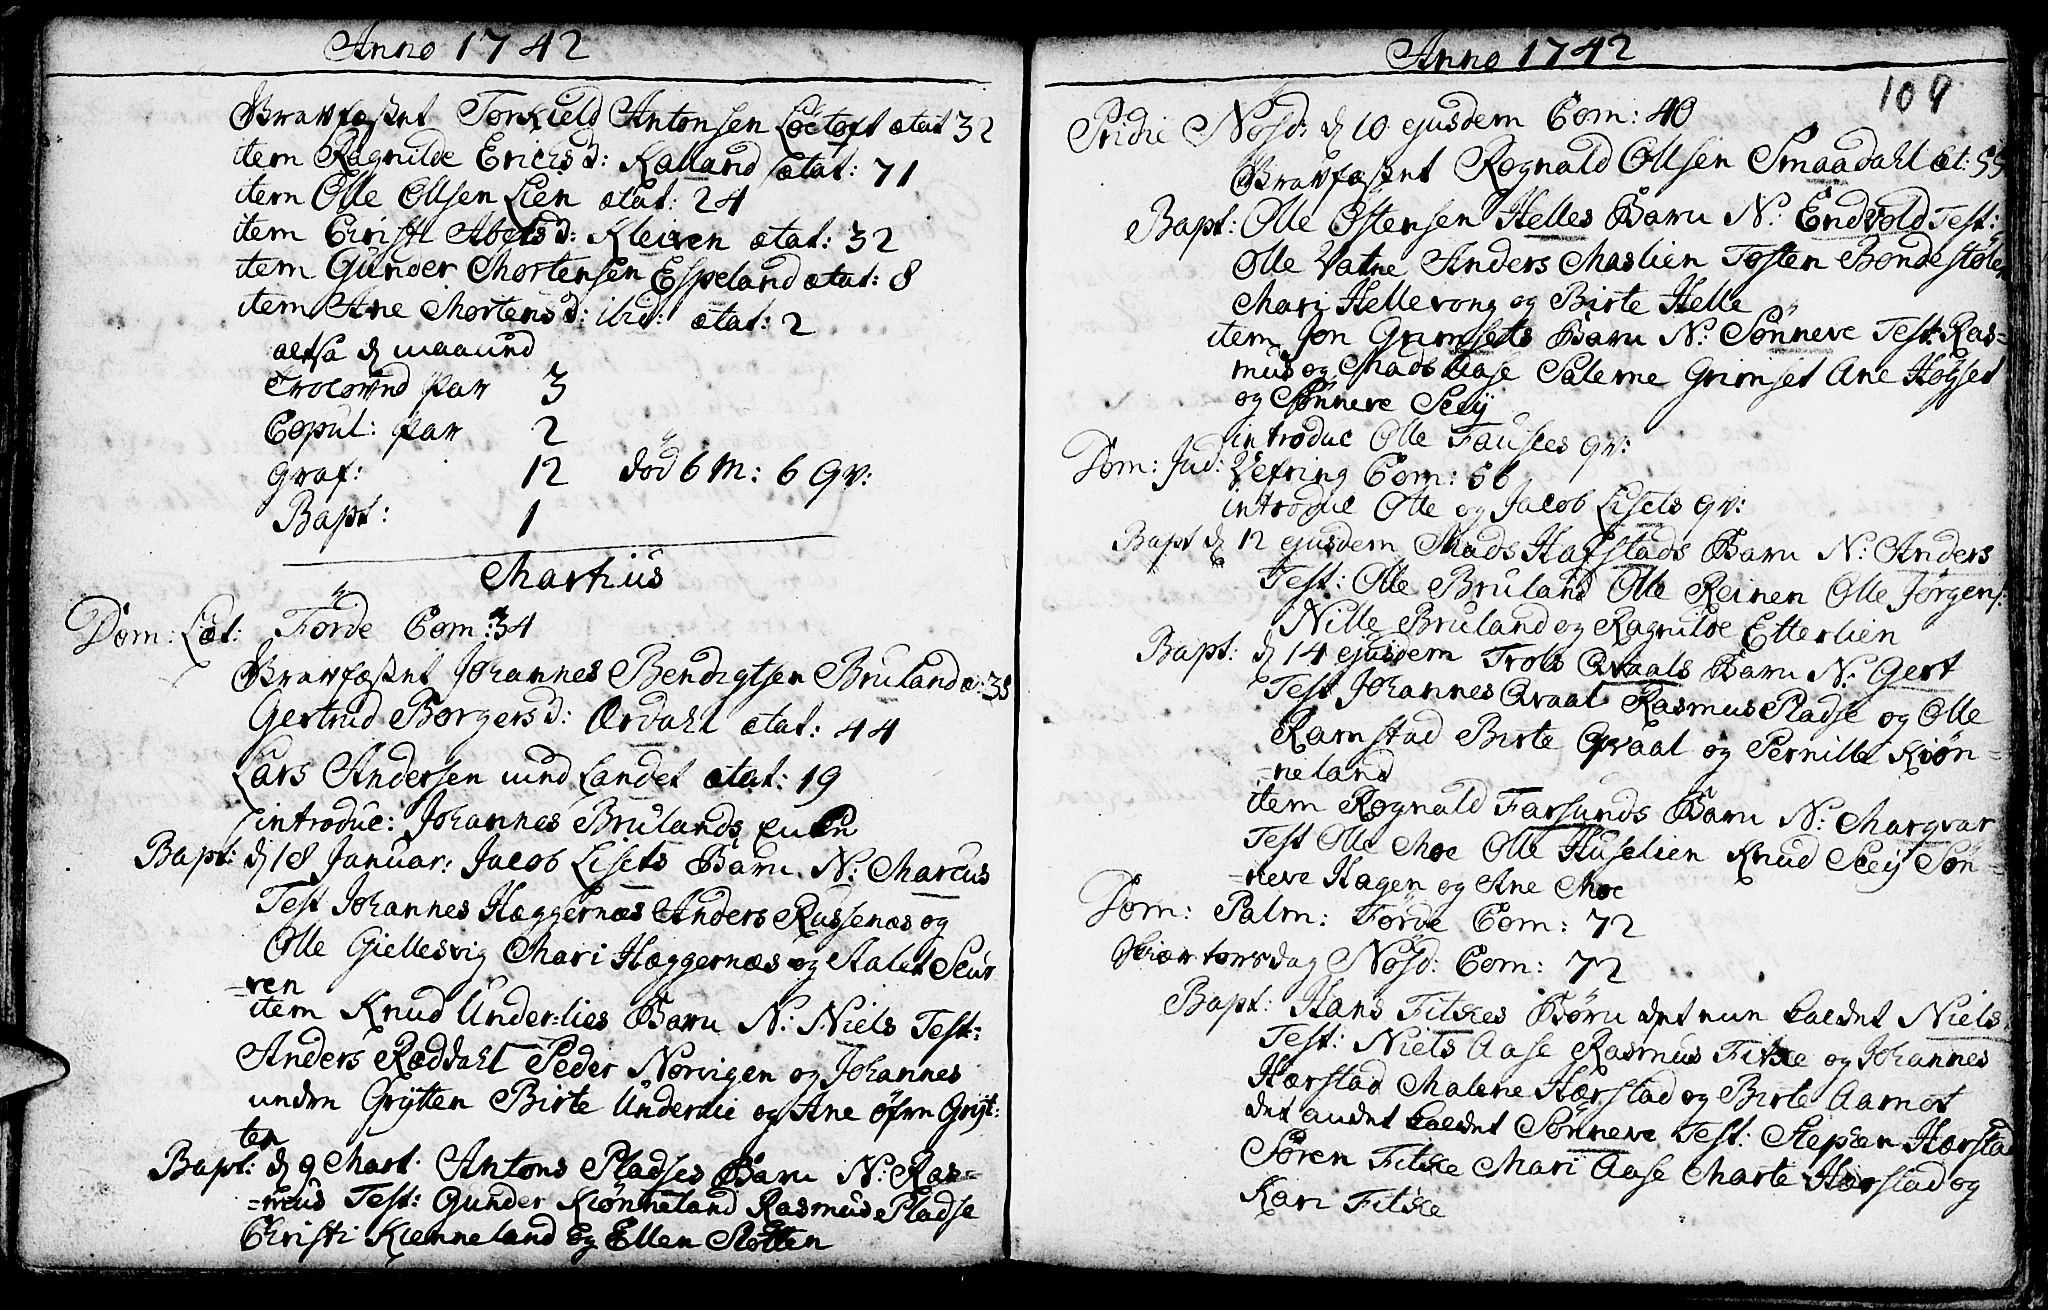 Anno 1742
Gravfæstet Torkield Antonsen Löetoft ætat 32
item Ragnilde Erichsd: Kalland ætat: 71
item Olle Ollsen Lien ætat: 24
item Christi Abelsd: Kleiven ætat: 32
item Gunder Mortensen Espeland ætat: 8
item Ane Mortensd: ibid: ætat: 2
altsa d maaned
Troloved Par 3
Copul: Par 2
Graf: 12 död 6 M: 6 Qv:
Bapt: 1
Martius
Dom: Læt: Förde Com: 34
Gravfæstet Johannes Bendigtsen Bruland æ: 38
Gertrud Børgersd: Ordahl ætat: 44
Lars Andersen und Landet ætat: 19
introduc: Johannes Brulands
Bapt: d 18 Januar: Jacob Lisets Barn N: Marcus
Test Johannes Hæggernæs Anders Russenæs og
Olle Giellesvig Mari Hæggernæs og Aalet Scur
=ven
item Knud Under-lies Barn N: Niels Test:
Anders Ræddahl Peder Norvigen og Johannes
unden Grytten Birte Underlie og Ane öfrn Gryt:
ten
Bapt: d 9 Mart: Antons Pladses Barn N: Ras=
=mus Test: Gunder Kiönneland Rasmus Pladse
Christi Kienneland og Ellen Slotten
Anno 1742
109
Pridie Nösd: d 10 ejusdem Com: 40
Gravfæstet Rognald Ollsen Smaadahl æt: 55
Bapt: Olle Ostensen Helles Barn N: Endvold Test:
Olle Vatne Anders Maslien Tosten Bondestölen
Mari Hellevong og Birte Helle
item Jon Grimsets Barn N: Sönneve Test: Ras=
mus og Mads Aase Salerne Grimset Ane Högset
og Sönneve Seey
introduc Olle Fauskes qv:
Dom: Jud: Vefring Com: 56
introduc Olle og Jacob Lisets qv:
Bapt d 12 ejusdem Mads Hafstads Barn N: Anders
Test: Olle Bruland Olle Reinen Olle Jörgens:
Nille Bruland og Ragnilde Etterlien
Bapt: d 14 ejusdem Trols Qvaals Barn N: Gert
Test Johannes Qvaal Rasmus Pladse og Olle
Ramstad Birte Qvaal og Pernille Kiön=
=neland
item Rognald Farsunds Barn N: Margvar
Test Olle Moe Olle Huselien Knud Seey Sön=
=neve Hagen og Ane Moe
Dom: Palm: Förde Com: 72
Skiærtorsdag Nösd: Com: 72
Bapt: Hans Fitskes Børn det een kaldet Niels
Test: Niels Aase Rasmus Fitske og Johannes
Hærstad Malene Hærstad og Birte Aamot
det andet kaldet Sønneve Test: Stephen Hærstad
Sören Fitske Mari Aase Marte Hærstad og
Kari Fitske